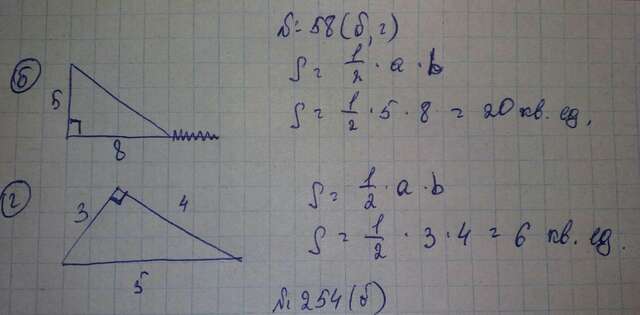 № 58 (б, г)
б
5
8
S = 1/2 · a · b
S = 1/2 · 5 · 8 = 20 кв. ед.
г
3
4
5
S = 1/2 · a · b
S = 1/2 · 3 · 4 = 6 кв. ед.
№ 254 (б)